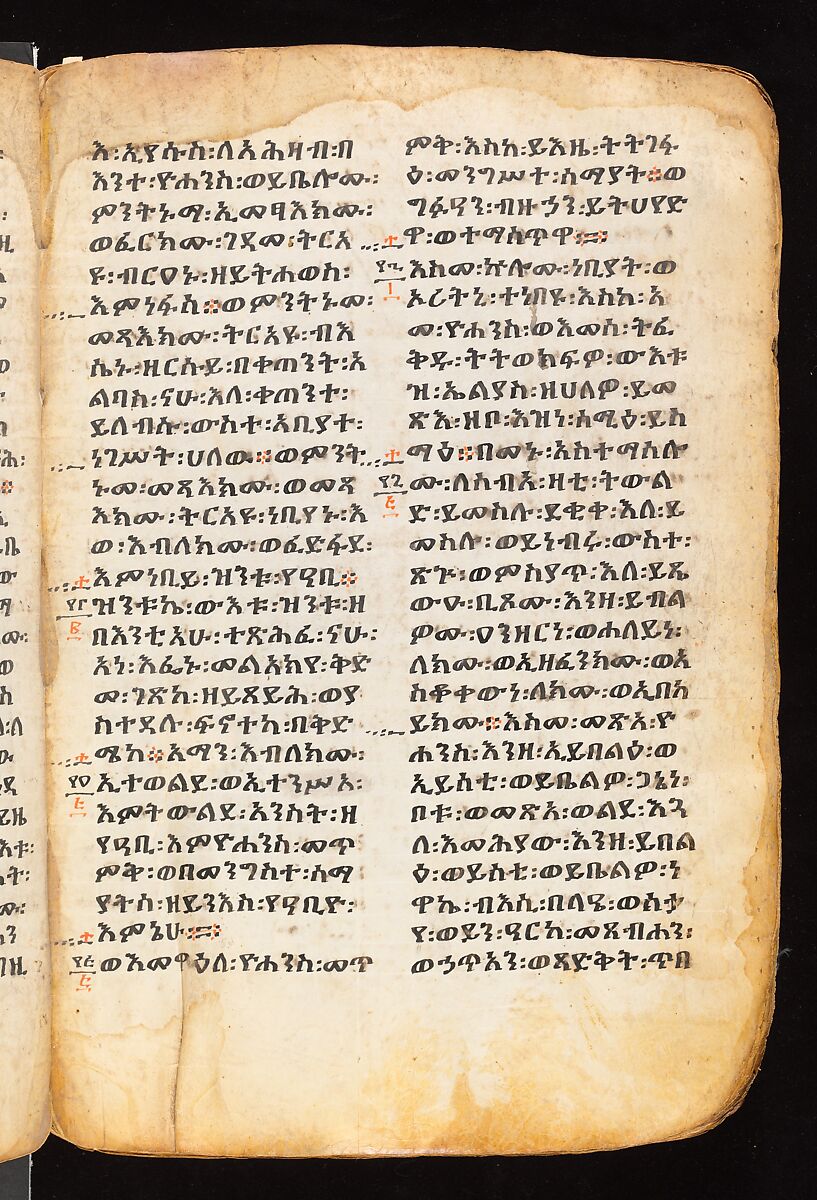 እ፡ኢየሱስ፡ለአሕዛብ፡በ
እንተ፡ዮሐንስ፡ወይቤሎሙ፡
ምንትኑማ፡ኢመፃእክሙ፡
ወፈርክሙ፡ገዳመ፡ትርአ
ዩ፡ብርዐኑ፡ዘይትሐወስ፡
እምነፋስ፨ወምንትኑመ፡
መጻእክሙ፡ትርአዩ፡ብእ
ሴኑ፡ዘርሱይ፡በቀጠንት፡አ
ልባስ፡ናሁ፡እለ፡ቀጠንተ፡
ይለብሱ፡ውስተ፡አቢያተ፡
ነገሥት፡ሀለው፨ወምንት
ኑመ፡መጻእክሙ፡ወመጻ
እክሙ፡ትርአዩ፡ነቢየኑ፡እ
ወ፡እብለክሙ፡ወፈድፋደ፡
እምነቢይ፡ዝንቱ፡የዓቢ፨
፷፫ ዝንቱኬ፡ውእቱ፡ዝንቱ፡ዘ
፪ በእንቲአሁ፡ተጽሕፈ፡ናሁ፡
አነ፡እፌኑ፡መልአክየ፡ቅድ
መ፡ገጽከ፡ዘይጸይሕ፡ወያ
ስተደሉ፡ፍኖተከ፡በቅድ
ሜከ፨አማን፡እብለክሙ፡
፷፬ ኢተወልደ፡ወኢተንሥአ፡
፭ እምትውልደ፡አንስት፡ዘ
የዓቢ፡እምዮሐንስ፡መጥ
ምቅ፡ወበመንግስተ፡ሰማ
ያትሰ፡ዘይንእስ፡የዓቢዮ፡
እምኔሁ፨
፷፭ ወእመዋዕለ፡ዮሐንስ፡መጥ
፭
ምቅ፡እስከ፡ይእዜ፡ትትገፋ
ዕ፡መንግሥተ፡ሰማያት፨ወ
ግፉዓን፡ብዙኃን፡ይትሀየድ
ዋ፡ወተማስጥዋ፨
፷፮ እስመ፡ኵሎሙ፡ነቢያት፡ወ
፲ ኦሪትነ፡ተነበዩ፡እስከ፡አ
መ፡ዮሐንስ፡ወእመሰ፡ትፈ
ቅዱ፡ትትወከፍዎ፡ውእቱ
ዝ፡ኤልያስ፡ዘሀለዎ፡ይመ
ጽእ፡ዘቦ፡እዝነ፡ሰሚዕ፡ይስ
ማዕ፨በመኑ፡አስተማስሎ
፷፯ ሙ፡ለሰብአ፡ዛቲ፡ትውል
፭ ድ፡ይመስሉ፡ደቂቀ፡እለ፡ይ
መስሎ፡ወይነብሩ፡ውስተ፡
ጽጉ፡ወምስያጥ፡እለ፡ይጼ
ውዑ፡ቢጾሙ፡እንዘ፡ይብል
ዎሙ፡ዐንዘርነ፡ወሐለይነ፡
ለክሙ፡ወኢዘፈንክሙ፡ወአ
ስቆቀውነ፡ለክሙ፡ወኢበከ
ይክሙ፨እስመ፡መጽአ፡ዮ
ሐንስ፡እንዘ፡ኢይበልዕ፡ወ
ኢይስቲ፡ወይቤልዎ፡ጋኔነ፡
በቱ፡ወመጽአ፡ወልደ፡እጓ
ለ፡እመሕያው፡እንዘ፡ይበል
ዕ፡ወይስቲ፡ወይቤልዎ፡ነ
ዋኬ፡ብእሲ፡በላዒ፡ወሰታ
የ፡ወይን፡ዓርከ፡መጸብሐን፡
ወኃጥአን፡ወጻድቅት፡ጥበ